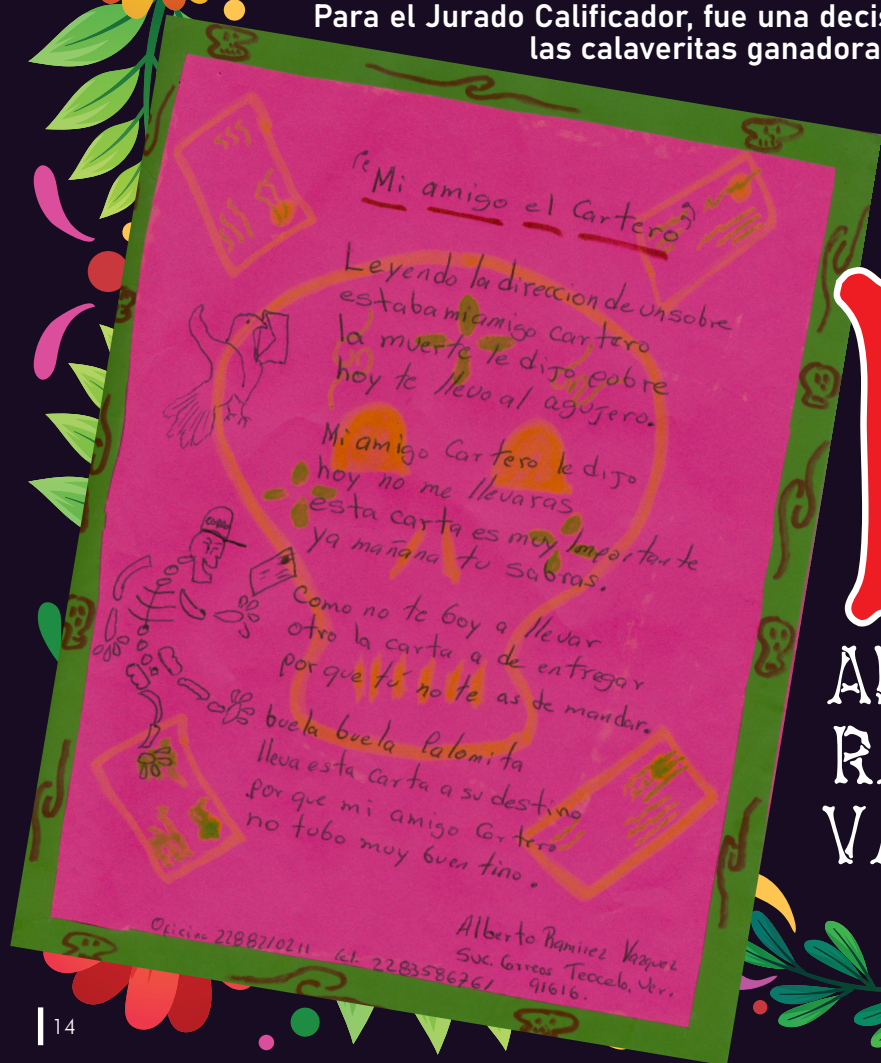 Para el Jurado Calificador, fue una decis
las calaveritas ganadora
"Mi amigo el Cartero"
Leyendo la direccion de un sobre
estaba mi amigo cartero
la muerte le dijo pobre
hoy te llevo al agujero.
Mi amigo Cartero le dijo
hoy no me llevaras
esta carta es muy Importante
ya mañana tu sabras.
Como no te boy a llevar
otro la carta a de entregar
por que tú no te as de mandar.
buela buela Palomita
lleva esta carta a su destino
por que mi amigo Cartero
no tubo muy buen tino.
Alberto Ramirez Vazquez
Suc. Correos Teocelo, Ver.
91616.
Oficina 2288210211 Cel. 2283586761
14